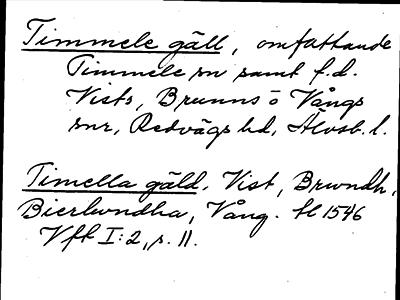 Timmele gäll, omfattande
Timmele sn samt f.d.
Vists, Brunns o Vångs
snr, Redvägs hd, Älvsb. l.
Timella gäld. Vist, Brwndh,
Bierlwndha, Vång. tl 1546
Vfl I:2, s. 11.